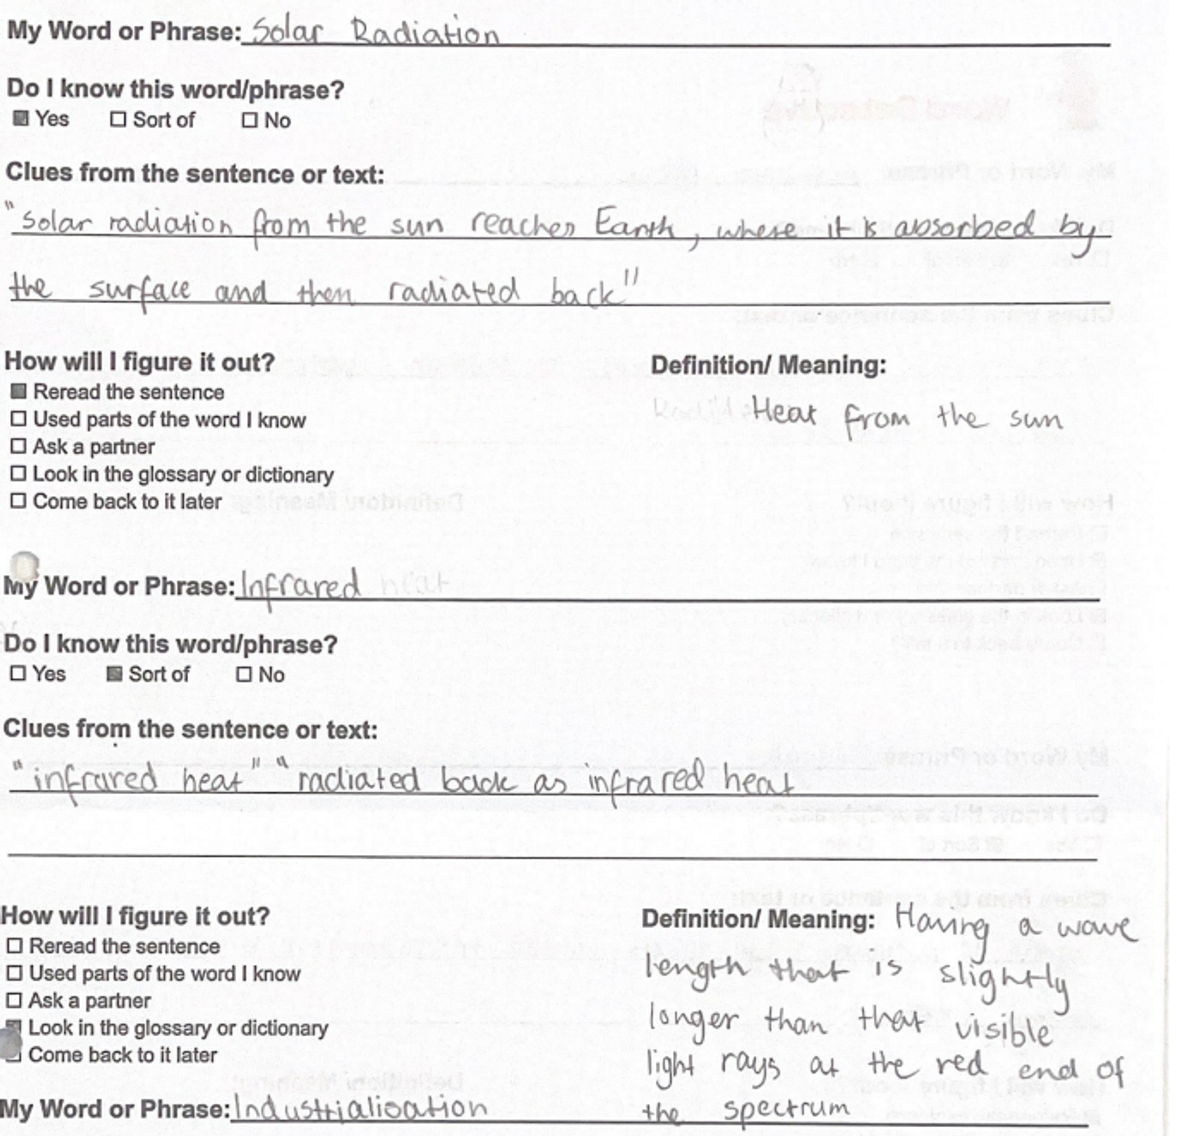 My Word or Phrase: Solar Radiation
Do I know this word/phrase?
Yes Sort of No
Clues from the sentence or text:
"Solar radiation from the sun reaches Earth, where it is absorbed by
the surface and then radiated back"
How will I figure it out?
Definition/ Meaning:
Reread the sentence
Heat from the sun
Used parts of the word I know
Ask a partner
Look in the glossary or dictionary
Come back to it later
My Word or Phrase: Infrared heat
Do I know this word/phrase?
Yes Sort of No
Clues from the sentence or text:
"infrared heat" "radiated back as infrared heat
How will I figure it out?
Reread the sentence
Used parts of the word I know
Ask a partner
Look in the glossary or dictionary
Come back to it later
Definition/ Meaning: Having a wave
length that is slightly
longer than that visible
light rays at the red end of
the spectrum
My Word or Phrase: Industrialisation